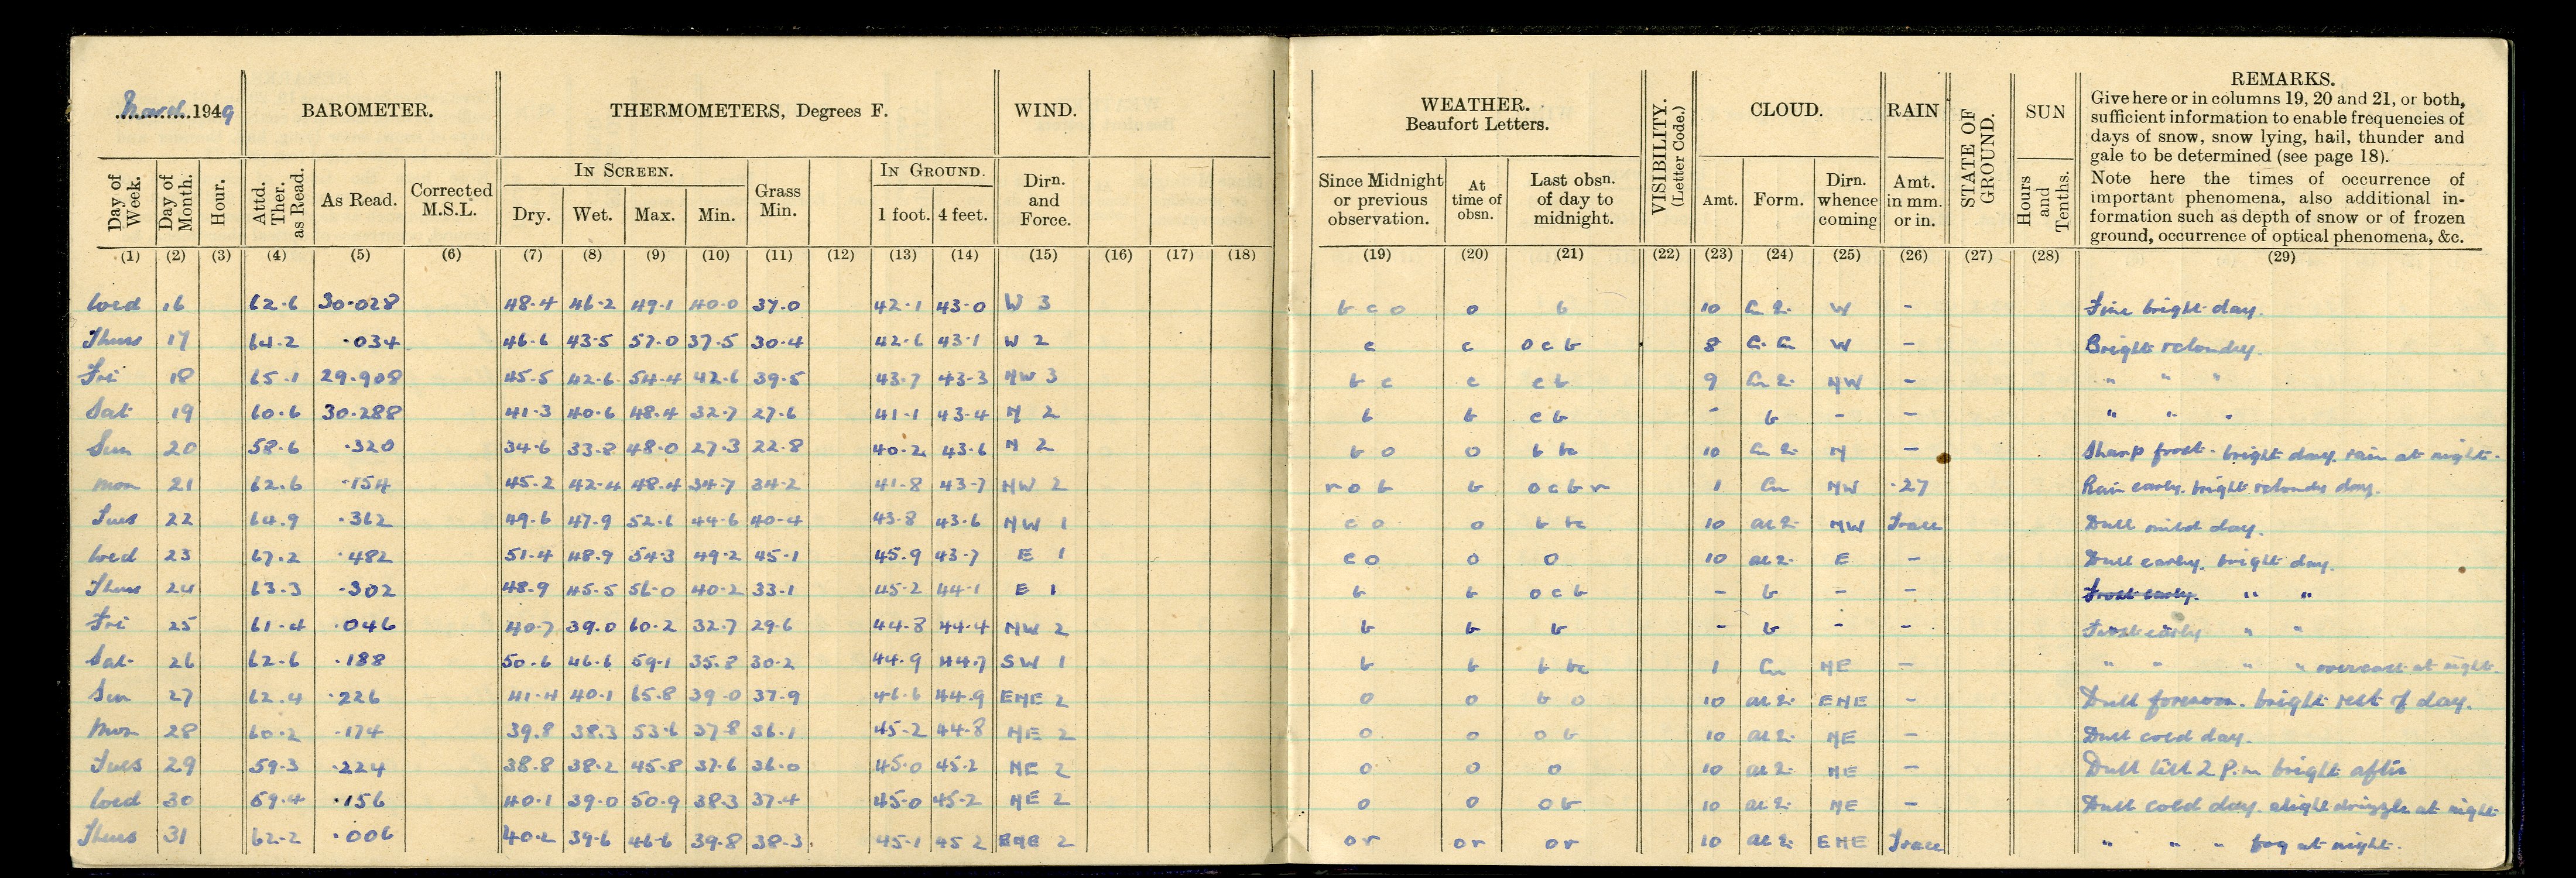 March 1949
BAROMETER.
THERMOMETERS, Degrees F.
WIND.
WEATHER.
Beaufort Letters.
VISIBILITY.
(Letter Code.)
CLOUD.
RAIN
STATE OF GROUND.
SUN
REMARKS.
Give here or in columns 19, 20 and 21, or both,
sufficient information to enable frequencies of
days of snow, snow lying, hail, thunder and
gale to be determined (see page 18).
Note here the times of occurrence of
important phenomena, also additional in-
formation such as depth of snow or of frozen
ground, occurrence of optical phenomena, &c.
Day of Week. Day of Month. Hour. Attd. Ther. as Read. As Read. Corrected M.S.L.
IN SCREEN. Dry. Wet. Max. Min. Grass Min. IN GROUND. 1 foot. 4 feet. Dirn. and Force.
Since Midnight or previous observation. At time of obsn. Last obsn. of day to midnight. Amt. Form. Dirn. whence coming Amt. in mm. or in. Hours and Tenths.
(1) (2) (3) (4) (5) (6) (7) (8) (9) (10) (11) (12) (13) (14) (15) (16) (17) (18) (19) (20) (21) (22) (23) (24) (25) (26) (27) (28) (29)
Wed 16 62.6 30.028 48.4 46.2 49.1 40.0 37.0 42.1 43.0 W 3 b c o o b 10 W - Fine bright day.
Thurs 17 64.2 .034 46.6 43.5 57.0 37.5 30.4 42.6 43.1 W 2 c c o c b 8 W - Bright & cloudy.
Fri 18 65.1 29.908 45.5 42.6 54.4 42.6 39.5 43.7 43.3 NW 3 b c c c b 9 NW - " " "
Sat 19 60.6 30.288 41.3 40.6 48.4 32.7 27.6 41.1 43.4 N 2 b b c b - b - - " " "
Sun 20 58.6 .320 34.6 33.8 48.0 27.3 22.8 40.2 43.6 N 2 b o o b bc 10 N - Sharp frost. bright day. rain at night.
Mon 21 62.6 .154 45.2 42.4 48.4 34.7 34.2 41.8 43.7 NW 2 r o b b o c b r 1 Cu NW .27 Rain early. bright & cloudy day.
Tues 22 64.9 .362 49.6 47.9 52.6 44.6 40.4 43.8 43.6 NW 1 c o o b bc 10 NW Trace Dull mild day.
Wed 23 67.2 .482 51.4 48.9 54.3 49.2 45.1 45.9 43.7 E 1 c o o o 10 E - Dull early. bright day.
Thurs 24 63.3 .302 48.9 45.5 56.0 40.2 33.1 45.2 44.1 E 1 b b o c b - b - - Frost early. " "
Fri 25 61.4 .046 40.7 39.0 60.2 32.7 29.6 44.8 44.4 NW 2 b b b - b - - Frost early " "
Sat 26 62.6 .188 50.6 46.6 59.1 35.8 30.2 44.9 44.7 SW 1 b b b bc 1 Cu NE - " " " " overcast at night.
Sun 27 62.4 .226 41.4 40.1 65.8 39.0 37.9 46.6 44.9 ENE 2 o o b o 10 ENE - Dull forenoon. bright rest of day.
Mon 28 60.2 .174 39.8 38.3 53.6 37.8 36.1 45.2 44.8 NE 2 o o o b 10 NE - Dull cold day.
Tues 29 59.3 .224 38.8 38.2 45.8 37.6 36.0 45.0 45.2 NE 2 o o o 10 NE - Dull till 2 P.m bright after
Wed 30 59.4 .156 40.1 39.0 50.9 38.3 37.4 45.0 45.2 NE 2 o o o b 10 NE - Dull cold day. slight drizzle at night
Thurs 31 62.2 .006 40.2 39.6 46.6 39.8 38.3 45.1 45.2 ENE 2 o r o r o r 10 ENE Trace " " " fog at night.